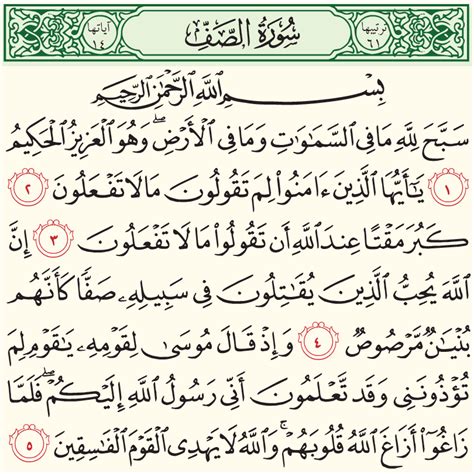 ترتيبها سُورَةُ الصَّفِّ آياتها
٦١ ١٤
بِسْمِ ٱللَّهِ ٱلرَّحْمَٰنِ ٱلرَّحِيمِ
سَبَّحَ لِلَّهِ مَا فِي ٱلسَّمَٰوَٰتِ وَمَا فِي ٱلْأَرْضِۖ وَهُوَ ٱلْعَزِيزُ ٱلْحَكِيمُ
١ يَٰٓأَيُّهَا ٱلَّذِينَ ءَامَنُوا لِمَ تَقُولُونَ مَا لَا تَفْعَلُونَ ٢
كَبُرَ مَقْتًا عِندَ ٱللَّهِ أَن تَقُولُوا مَا لَا تَفْعَلُونَ ٣ إِنَّ
ٱللَّهَ يُحِبُّ ٱلَّذِينَ يُقَٰتِلُونَ فِي سَبِيلِهِۦ صَفًّا كَأَنَّهُم
بُنْيَٰنٌ مَّرْصُوصٌ ٤ وَإِذْ قَالَ مُوسَىٰ لِقَوْمِهِۦ يَٰقَوْمِ لِمَ
تُؤْذُونَنِي وَقَد تَّعْلَمُونَ أَنِّي رَسُولُ ٱللَّهِ إِلَيْكُمْۖ فَلَمَّا
زَاغُوٓا أَزَاغَ ٱللَّهُ قُلُوبَهُمْۚ وَٱللَّهُ لَا يَهْدِي ٱلْقَوْمَ ٱلْفَٰسِقِينَ ٥